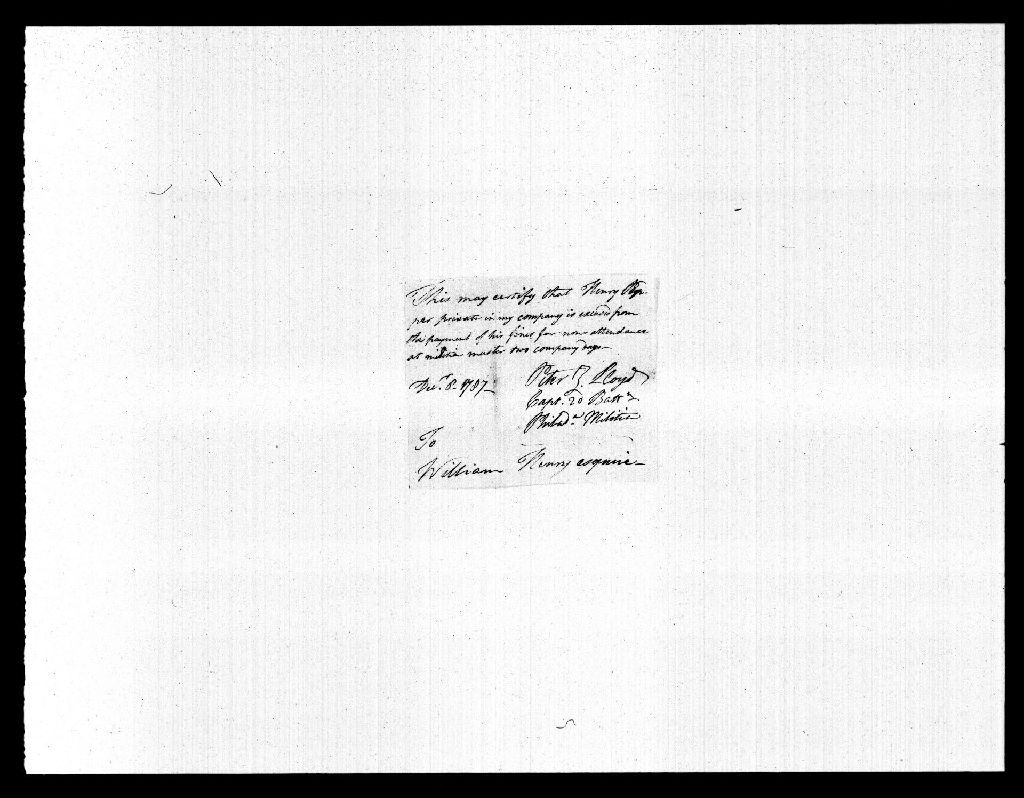 This may certify that Henry
per private in my company is excused from
the payment of his fines for non attendance
at militia muster two company days—
Decr. 8. 1787—
Peter Z. Lloyd
Capt. 2d Battn.
Philada. Militia
To
William Henry esquire—